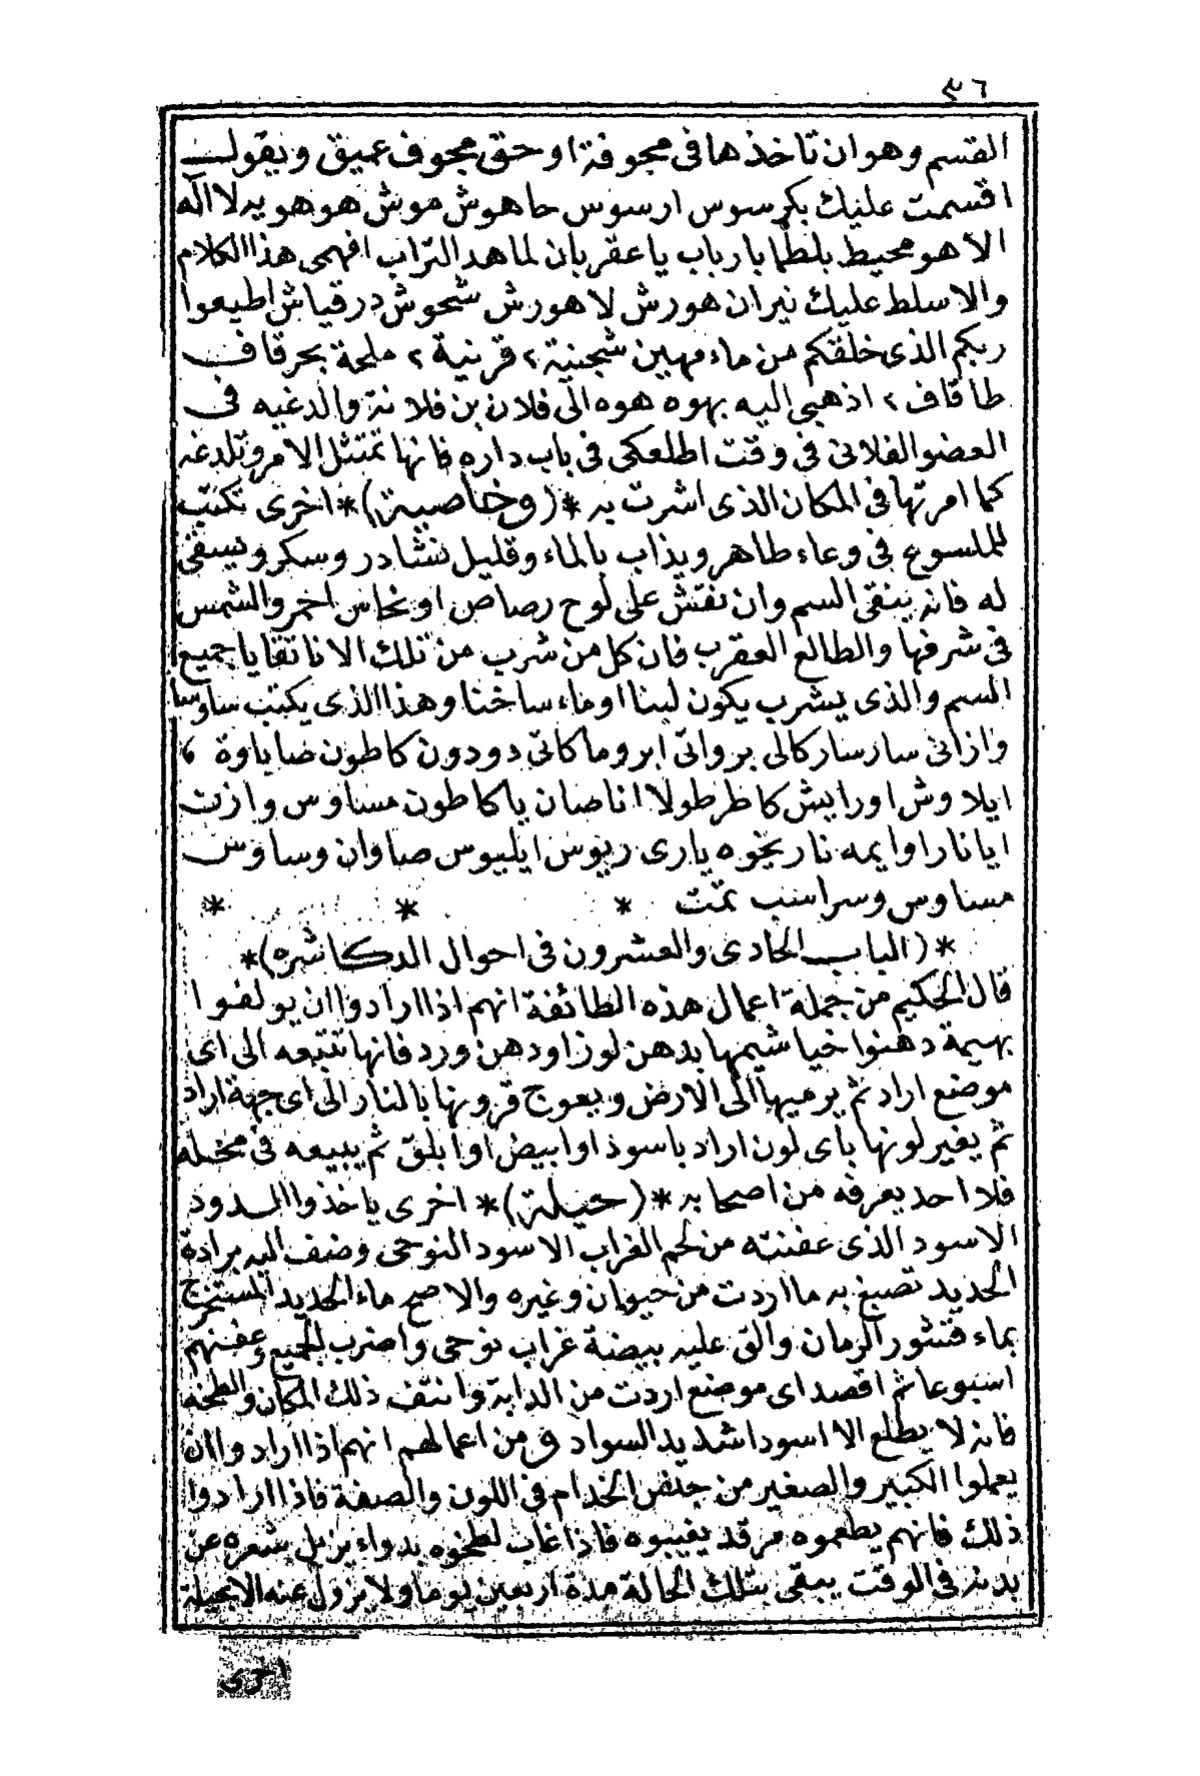 ٣٦
القسم وهو ان تاخذها فى مجوفة او حق مجوف عميق ويقول
اقسمت عليك بكرسوس ارسوس حاهوش موش هو هو يه لا اله
الا هو محيط بلطما بارباب يا عقربان لما هد التراب افهمى هذا الكلام
والا سلط عليك نيران هورش لا هورش شحوش درقياش اطيعوا
ربكم الذى خلقكم من ماء مهين شجنية ٢ قرنية ٢ ملحة بحرقاف
طاقاف ٢ اذهبى اليه بهوه هوه الى فلان بن فلانة والدغيه فى
العضو الفلانى فى وقت اطلعكى فى باب داره فانها تمتثل الامر وتلدغه
كما امرتها فى المكان الذى اشرت به *(وخاصية)* اخرى تكتب
للملسوع فى وعاء طاهر ويذاب بالماء وقليل نشادر وسكر ويسقى
له فانه ينقى السم وان نقش على لوح رصاص او نحاس احمر والشمس
فى شرفها والطالع العقرب فان كل من شرب من تلك الانا تقايا جميع
السم والذى يشرب يكون لبنا او ماء ساخنا وهذا الذى يكتب ساوسا
وازانى سارسار كالى بروانى ابروماكانى دودون كاطون ضاياوة ،
ايلاوش اورايش كاظرطولا اناصان ياكاطون مساوس وازت
ايانارا وايمه ناريخوه يارى ريوس ايليوس صاوان وساوس
مساوس وسراسب تمت * * *
*(الباب الحادى والعشرون فى احوال الدكاشره)*
قال الحكيم من جملة اعمال هذه الطائفة انهم اذا ارادوا ان يولفوا
بهيمة دهنوا خياشيمها بدهن لوز او دهن ورد فانها تتبعه الى اى
موضع اراد ثم يرميها الى الارض ويعوج قرونها بالنار الى اى جهة اراد
ثم يغير لونها باى لون اراد باسود او ابيض او ابلق ثم يبيعه فى محله
فلا احد يعرفه من اصحابه *(حيلة)* اخرى ياخذوا الدود
الاسود الذى عفنته من لحم الغراب الاسود النوحى وضف اليه برادة
الحديد تصبغ به ما اردت من حيوان وغيره والاصح ماء الحديد المستخرج
بماء قشور الرمان والق عليه بيضة غراب نوحى واضرب الجميع وعفنهم
اسبوعا ثم اقصد اى موضع اردت من الدابة وانتف ذلك المكان والطخه
فانه لا يطلع الا اسودا شديد السواد ومن اعمالهم انهم اذا ارادوا ان
يعملوا الكبير والصغير من جنس الخدام فى اللون والصفة فاذا ارادوا
ذلك فانهم يطعموه مرقد يغيبوه فاذا غاب لطخوه بدواء يزيل شعره عن
بدنه فى الوقت يبقى بتلك الحالة مدة اربعين يوما ولا يزول عنه الا بحيلة
اخرى